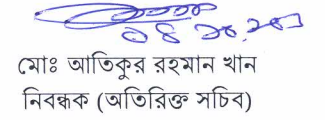 মোঃ আতিকুর রহমান খান
নিবন্ধক (অতিরিক্ত সচিব)